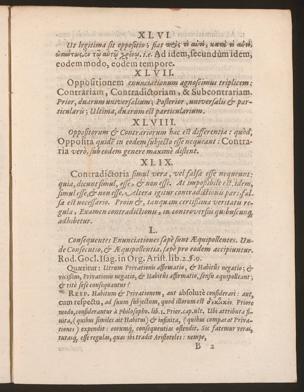 XLVI
Ut legitima sit oppositio; fiat πρὸς τὸ αὐτὸ, κατὰ τὸ αὐτὸ,
i.e. Ad idem, secundùm idem,
eodem modo, eodem tempore.
XLVII.
Oppositionem enunciationum agnoscimus triplicem:
Contrariam, Contradictoriam, & Subcontrariam.
Prior, duarum universalium; Posterior, universalis & par-
ticularis; Ultima, duarum est particularium.
XLVIII.
Oppositorum & Contrariorum hæc est differentia: quòd,
Opposita quidē in eodem subjecto esse nequeant: Contra-
ria verò, sub eodem genere maximè distent.
XLIX.
Contradictoria simul vera, vel falsa esse nequeunt:
quia, dicunt simul, esse, & non esse. At impossibile est, idem,
simul esse, & non esse. Altera igitur contradictionis pars, fal-
sa est necessariò. Proin &, tanquam certissima veritatis re-
gula: Examen contradictionis, in controversiis quibuscunq;
adhibetur.
L.
Consequentes Enunciationes sæpè sunt Æquipollentes. Un-
de Consecutio, & Æquipollentia, sæpè pro eodem accipiuntur.
Rod. Gocl. Isag. in Org. Arist. lib. 2. f. 9.
Quæritur: Utrum Privationis affirmatio, & Habitûs negatio; &
vicissim, Privationis negatio, & Habitûs affirmatio, sensu æquipolleant;
& ritè sese consequantur?
Resp. Habitum & Privationem, aut absolutè considerari: aut,
cum respectu, ad suum subjectum, quod illorum est δεκτικόν. Priore
modo, considerantur à Philosopho. lib. 1. Prior. cap. ult. Ubi attributa fi-
nita, (quibus similes ait Habitus) & infinita, (quibus comparat Priva-
tiones) expendit: eorumq; consequentias ostendit. Sic fatemur veras,
tutasq; esse regulas, quas ibi tradit Aristoteles: nempe,
B 2